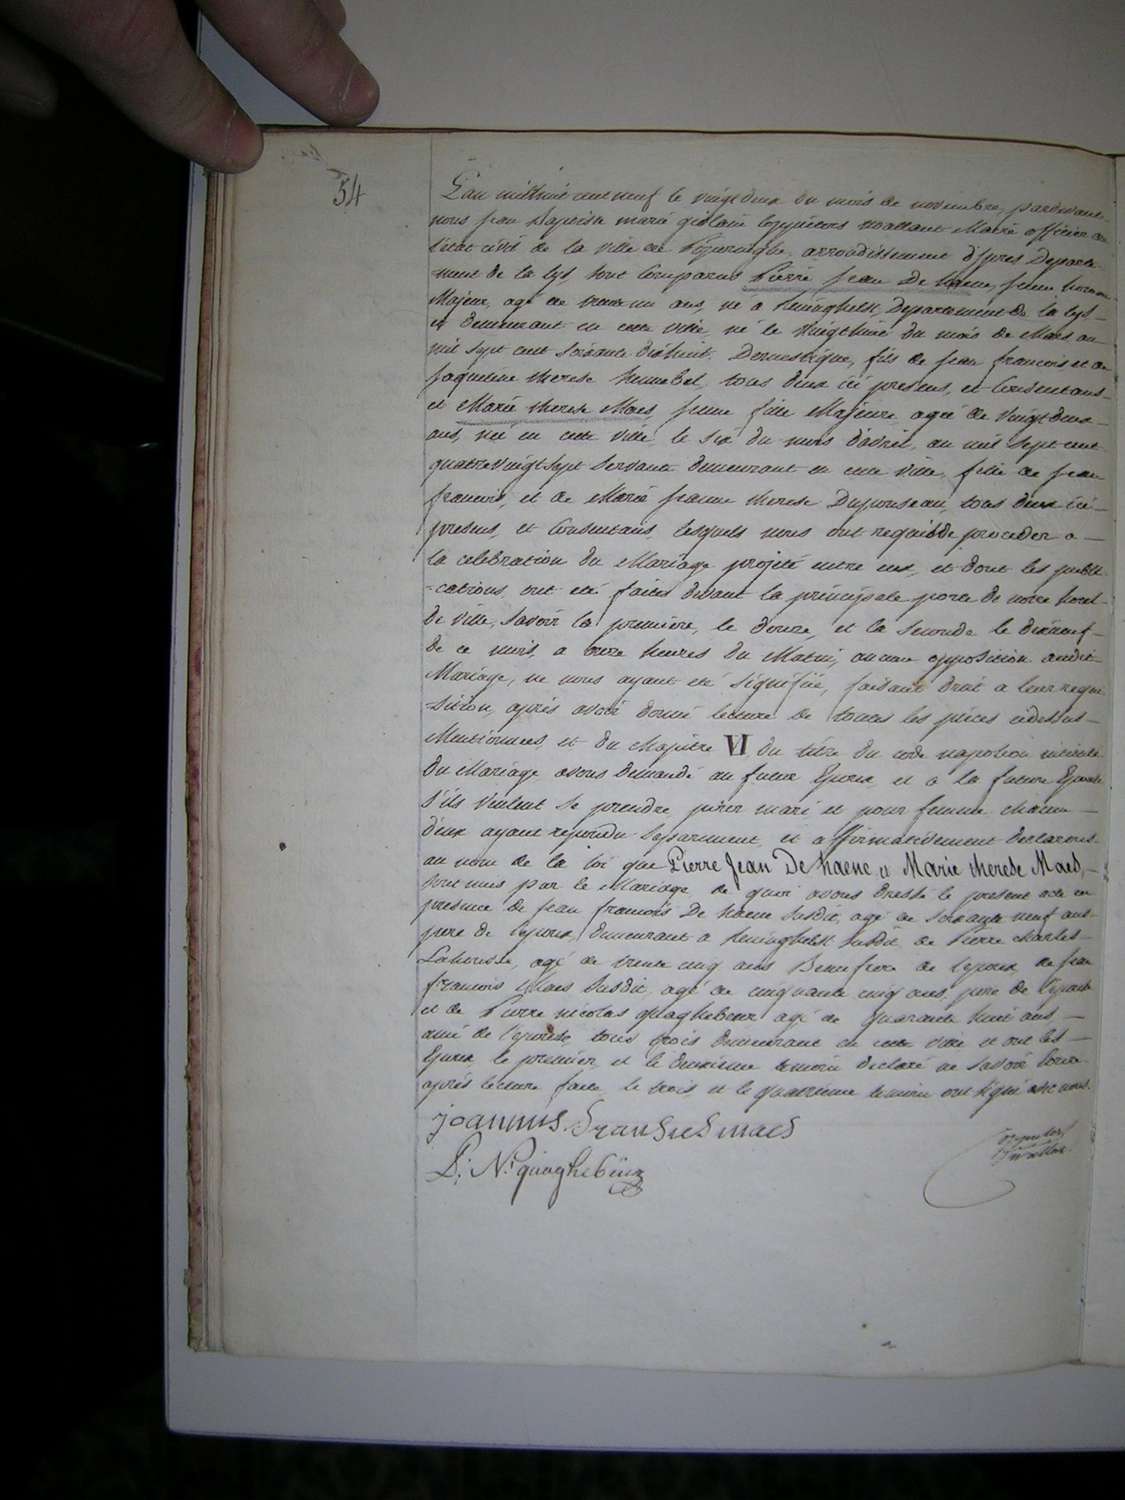 54
L'an mil huit cent neuf le vingt deux du mois de novembre, pardevant
nous jean Baptiste marie gislain Maire officier de
l'état civil de la ville de Poperinghe, arrondissement d'ypres Departe
-ment de la Lys sont Comparus Pierre Jean De haene, jeune homme
Majeur, agé de trente un ans, né a Reninghelst, Departement de la Lys
et demeurant en cette ville, né le vingt huit du mois de Mars an
mil sept cent soixante dixhuit, Domestique, fils de jean francois et de
jaqueline therese hennebel, tous deux ici presens, et Consentans
et Marie therese Maes, jeune fille Majeure agée de vingt deux
ans, née en cette ville le six du mois d'avril, an mil sept cent
quatrevingt sept servante demeurant en cette ville, fille de jean
francois, et de Marie jeanne therese tous deux ici
presens, et Consentans, lesquels nous ont requis de proceder a
la celebration du Mariage projeté entre eux, et dont les publi
-cations ont eté faites devant la principale porte de notre hotel
de ville, savoir la premiere, le douze, et la seconde le dixneuf
de ce mois, a onze heures du Matin, aucune opposition audit
Mariage, ne nous ayant eté signifiée, faisant droit a leur requi
-sition, après avoir donné lecture de toutes les pièces cidessus
Mentionnées, et du chapitre VI du titre du code napoleon intitulé
du Mariage avons demandé au futur Epoux, et a la future Epouse
s'ils veulent se prendre pour mari et pour femme, chacun
d'eux ayant repondu separement, et affirmativement declarons
au nom de la loi que Pierre Jean De haene et Marie therese Maes,
sont unis par le Mariage, de quoi avons dressé le present acte en
presence de jean francois De haene susdit, agé de soixante neuf ans
pere de l'epoux, demeurant a Reninghelst susdit, de Pierre charles
agé de trente cinq ans Beaufrere de l'epoux, de jean
francois Maes susdit, agé de cinquante cinq ans, pere de l'epouse
et de Pierre nicolas quaghebeur agé de quarante huit ans
ami de l'epouse, tous trois demeurant en cette ville et ont les
Epoux le premier, et le deuxieme temoin declaré ne savoir ecrire
après lecture faite le trois, et le quatrieme temoin ont signé avec nous.
joannus Fransies maes
P: N: quaghebeur